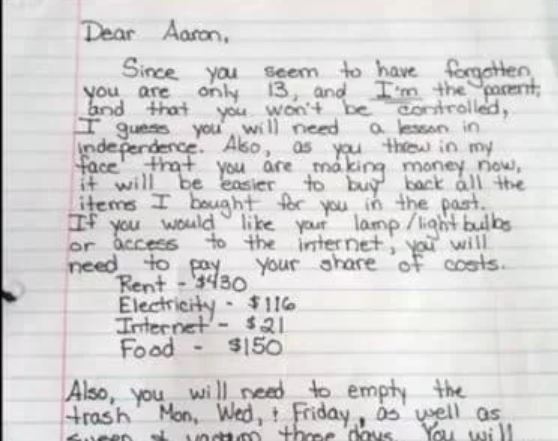 Dear Aaron,
Since you seem to have forgotten
you are only 13, and I'm the parent,
and that you won't be controlled,
I guess you will need a lesson in
independence. Also, as you threw in my
face that you are making money now,
it will be easier to buy back all the
items I bought for you in the past.
If you would like your lamp/light bulbs
or access to the internet, you will
need to pay your share of costs.
Rent - $430
Electricity - $116
Internet - $21
Food - $150
Also, you will need to empty the
trash Mon, Wed, + Friday, as well as
sweep + vacuum those days. You will